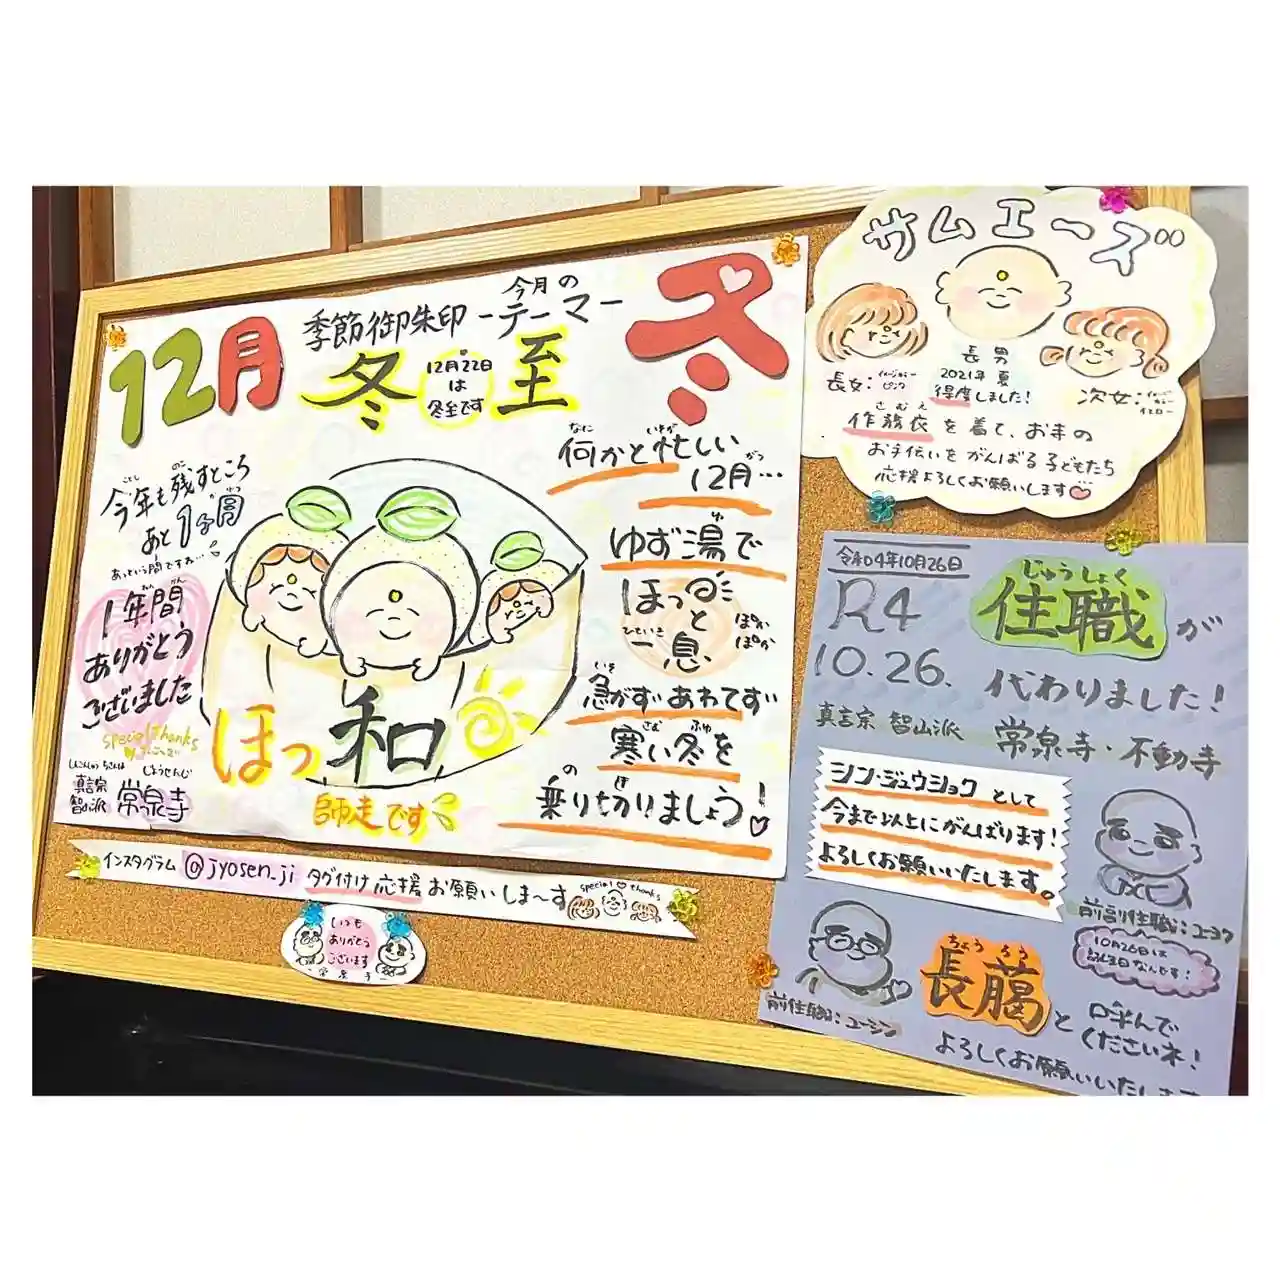 12月
季節御朱印
今月の
-テーマ-
冬至
12月22日
は
冬至です
冬
ことし のこ
今年も残すところ
あと1ヶ月
あっという間ですね…
1年間
ありがとう
ございました
special thanks
真言宗
智山派
じょうせんじ
常泉寺
ほっ和
師走です
なに いそが
何かと忙しい
がつ
12月…
ゆ
ゆず湯で
ほっと
ひといき
一息
ぽかぽか
いそ
急がずあわてず
さむ ふゆ
寒い冬を
の き
乗り切りましょう!
インスタグラム @jyosen_ji タグ付け応援お願いしま〜す
special thanks
いつも
ありがとう
ございます
常泉寺
サムエーズ
長男
2021年 夏
得度しました!
長女:イメージカラー
ピンク
次女:イメージカラー
イエロー
さむえ
作務衣を着て、お寺の
お手伝いをがんばる子どもたち
応援よろしくお願いします
令和04年10月26日
R4
10.26.
じゅうしょく
住職が
代わりました!
真言宗 智山派 常泉寺・不動寺
シン・ジュウショクとして
今まで以上にがんばります!
よろしくお願いいたします。
前副住職:ユーヨク
10月26日は
誕生日なんです!
前住職:ユーシン
ちょうろう
長﨟と
呼んで
くださいネ!
よろしくお願いいたします